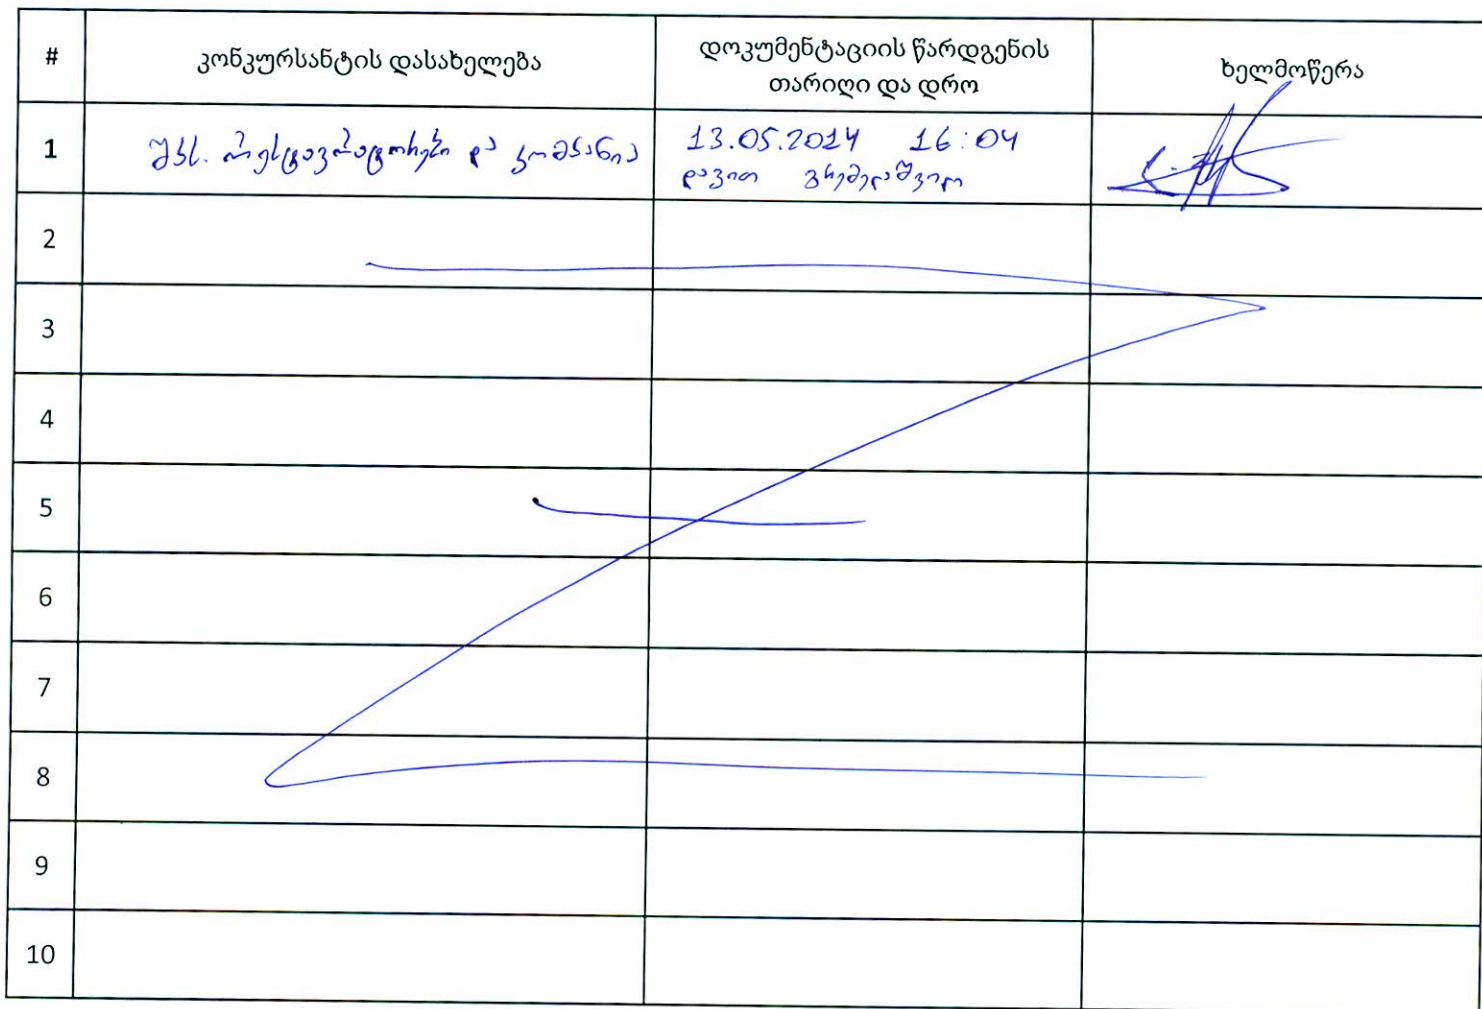 # კონკურსანტის დასახელება დოკუმენტაციის წარდგენის თარიღი და დრო ხელმოწერა
1 შპს. რესტავრატორები და კომპანია 13.05.2014 16:04
დავით გრემელაშვილი
2
3
4
5
6
7
8
9
10